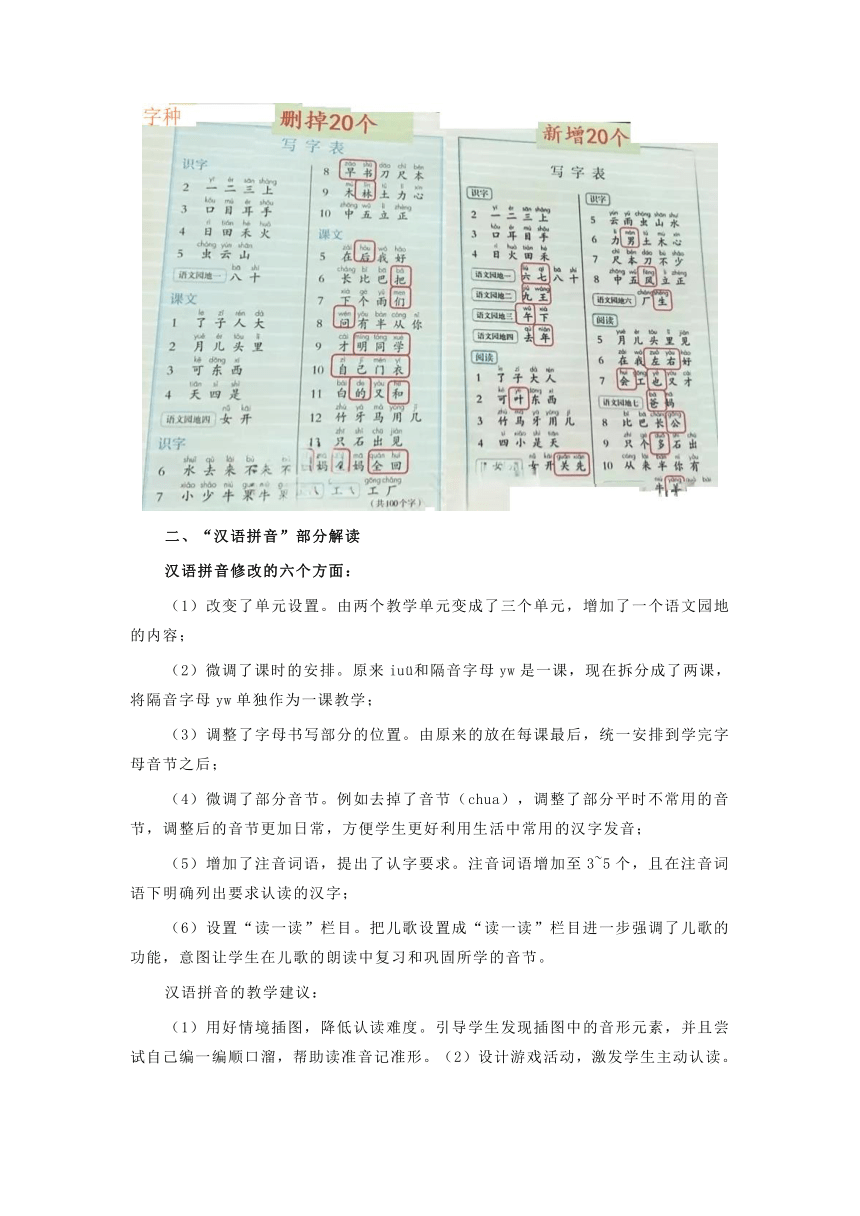 字种
删掉20个
写字表
识字
2 一二三上
3 口目耳手
4 日田禾火
5 虫云山
语文园地一 八十
课文
1 了子人大
2 月儿头里
3 可东西
4 天四是
语文园地四 女开
识字
6 水去来不
7 小少牛果
8 早书刀尺本
9 木林土力心
10 中五立正
课文
5 在后我好
6 长比巴把
7 下个雨们
8 问有半从你
9 才明同学
10 自己门衣
11 白的又和
12 竹牙马用几
13 只石出见
妈 全回
工厂
(共100个字)
新增20个
写字表
识字
2 一二三上
3 口耳目手
4 日火田禾
语文园地一 六七八十
语文园地二 九王
语文园地三 午下
语文园地四 去年
阅读
1 了子大人
2 可叶东西
3 竹马牙用几
4 四小是天
女开关先
识字
5 云雨虫山水
6 力男土木心
7 尺本刀不少
8 中五风立正
语文园地六 厂生
阅读
5 月儿头里见
6 在我左右好
7 会工也又才
语文园地七 爸妈
8 比巴长公
9 只个多石出
10 从来半你有
牛羊
二、“汉语拼音”部分解读
汉语拼音修改的六个方面：
（1）改变了单元设置。由两个教学单元变成了三个单元，增加了一个语文园地
的内容；
（2）微调了课时的安排。原来 iuü和隔音字母 yw 是一课，现在拆分成了两课，
将隔音字母 yw 单独作为一课教学；
（3）调整了字母书写部分的位置。由原来的放在每课最后，统一安排到学完字
母音节之后；
（4）微调了部分音节。例如去掉了音节（chua），调整了部分平时不常用的音
节，调整后的音节更加日常，方便学生更好利用生活中常用的汉字发音；
（5）增加了注音词语，提出了认字要求。注音词语增加至 3~5 个，且在注音词
语下明确列出要求认读的汉字；
（6）设置“读一读”栏目。把儿歌设置成“读一读”栏目进一步强调了儿歌的
功能，意图让学生在儿歌的朗读中复习和巩固所学的音节。
汉语拼音的教学建议：
（1）用好情境插图，降低认读难度。引导学生发现插图中的音形元素，并且尝
试自己编一编顺口溜，帮助读准音记准形。（2）设计游戏活动，激发学生主动认读。